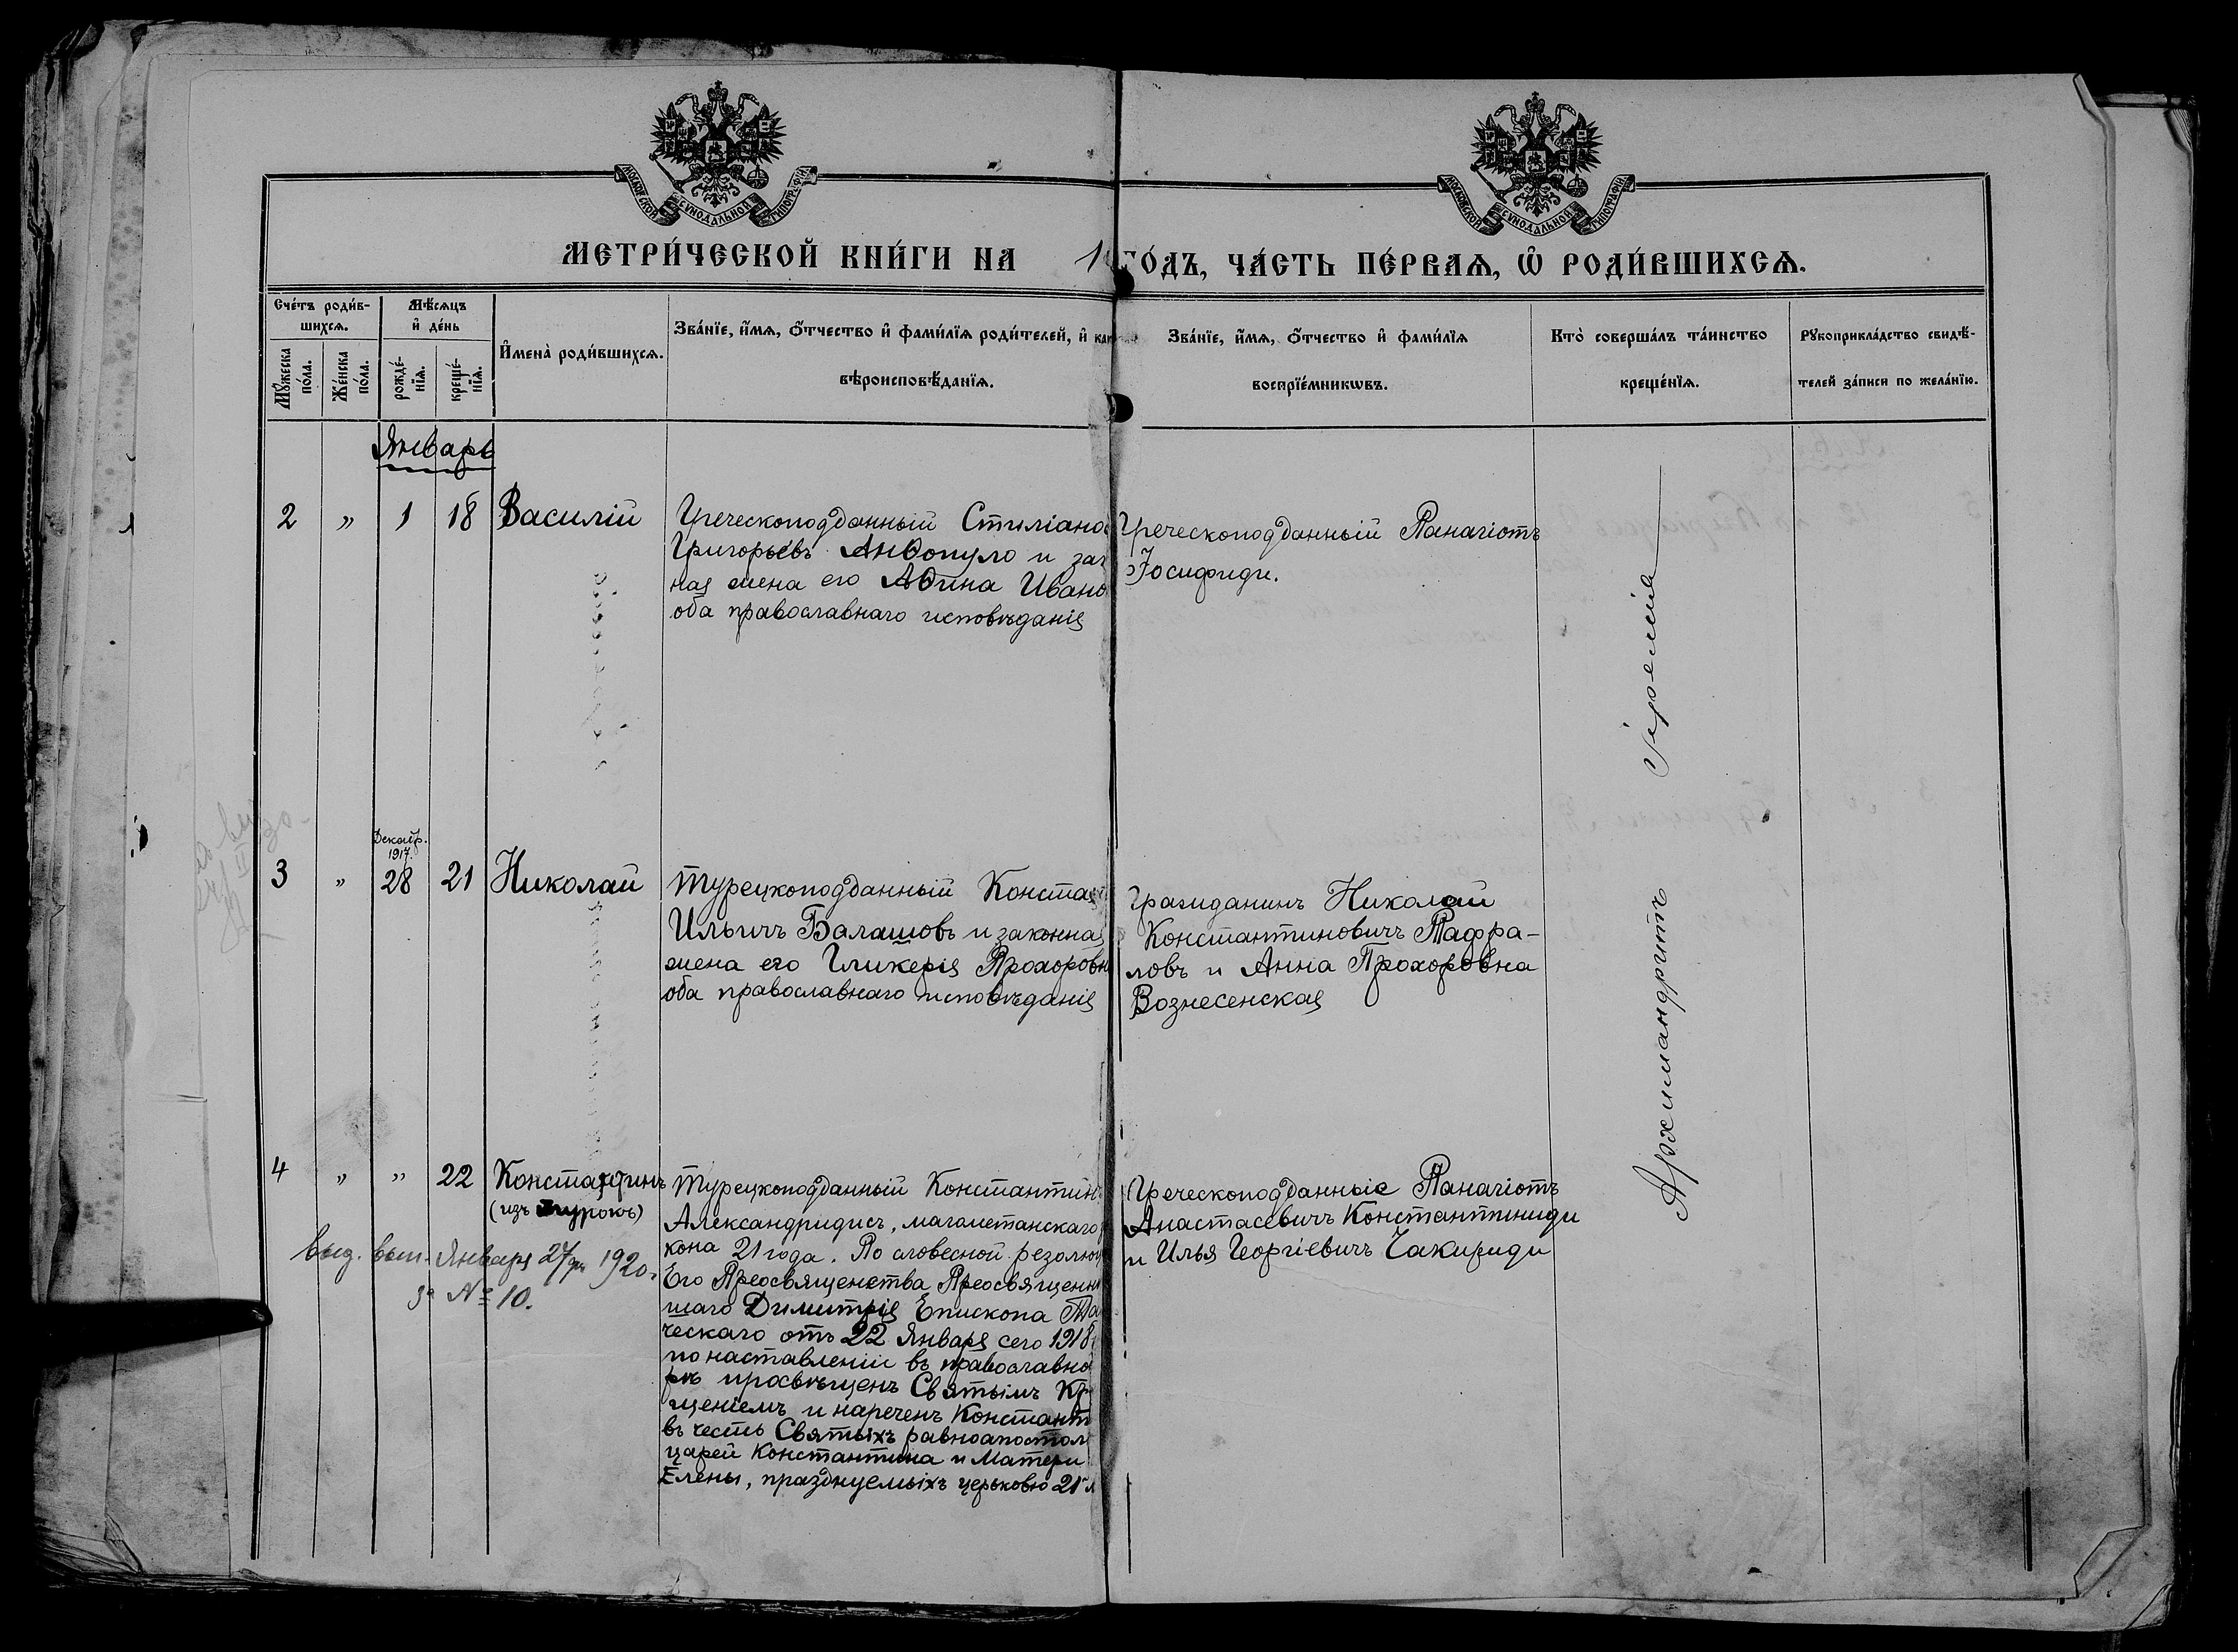 МОСКОВСКОЙ СѴНОДАЛЬНОЙ ТИПОГРАФІИ
МОСКОВСКОЙ СѴНОДАЛЬНОЙ ТИПОГРАФІИ
МЕТРИ́ЧЕСКОЙ КНИ́ГИ НА 1
ГО́ДЪ, ЧА́СТЬ ПЕ́РВАѦ, Ѡ҆ РОДИ́ВШИХСѦ.
Сче́тъ роди́в-
шихсѧ.
Мꙋ́жеска
по́ла.
Же́нска
по́ла.
Мѣ́сѧцъ
и҆ де́нь
рожде́-
нїѧ.
креще́-
нїѧ.
И҆мена̀ роди́вшихсѧ.
Зва́нїе, и҆́мѧ, ѻ҆́тчество и҆ фами́лїѧ роди́телей, и҆ как
вѣроисповѣ́данїѧ.
Зва́нїе, и҆́мѧ, ѻ҆́тчество и҆ фами́лїѧ
воспрїе́мникѡвъ.
Кто̀ соверша́лъ та́инство
креще́нїѧ.
Рꙋкоприкла́дство свидѣ́-
телей за́писи по жела́нїю.
Январь
2 „ 1 18 Василій
Греческоподданный Стиліано
Григорьевъ Анѳопуло и зак
ная жена его Аѳина Ивано
оба православнаго исповѣданія
Греческоподданный Панагіотъ
Іосифиди.
Декабр.
1917.
3 „ 28 21 Николай
Турецкоподданный Конста
Ильичъ Балашовъ и законная
жена его Гликерія Прохоровн
оба православнаго исповѣданія
Гражданинъ Николай
Константиновичъ Тафра-
ловъ и Анна Прохоровна
Вознесенская
4 „ „ 22 Константинъ
(изъ турокъ)
выд. вып. Января 27 дн 1920.
за № 10.
Турецкоподданный Константинъ
Александридисъ, магометанскаго
кона 21 года. По словесной резолюц
Его Преосвященства Преосвященн
шаго Димитрія Епископа Та
ческаго отъ 22 Января сего 1918
по наставленіи въ православно
рѣ просвѣщенъ Святымъ Кр
щеніемъ и нареченъ Констант
въ честь Святыхъ равноапостол
царей Константина и Матери
Елены, празднуемыхъ церковью 21
Греческоподданные Панагіотъ
Анастасевичъ Константиниди
и Илья Георгіевичъ Чакириди
Архимандритъ Іеремія